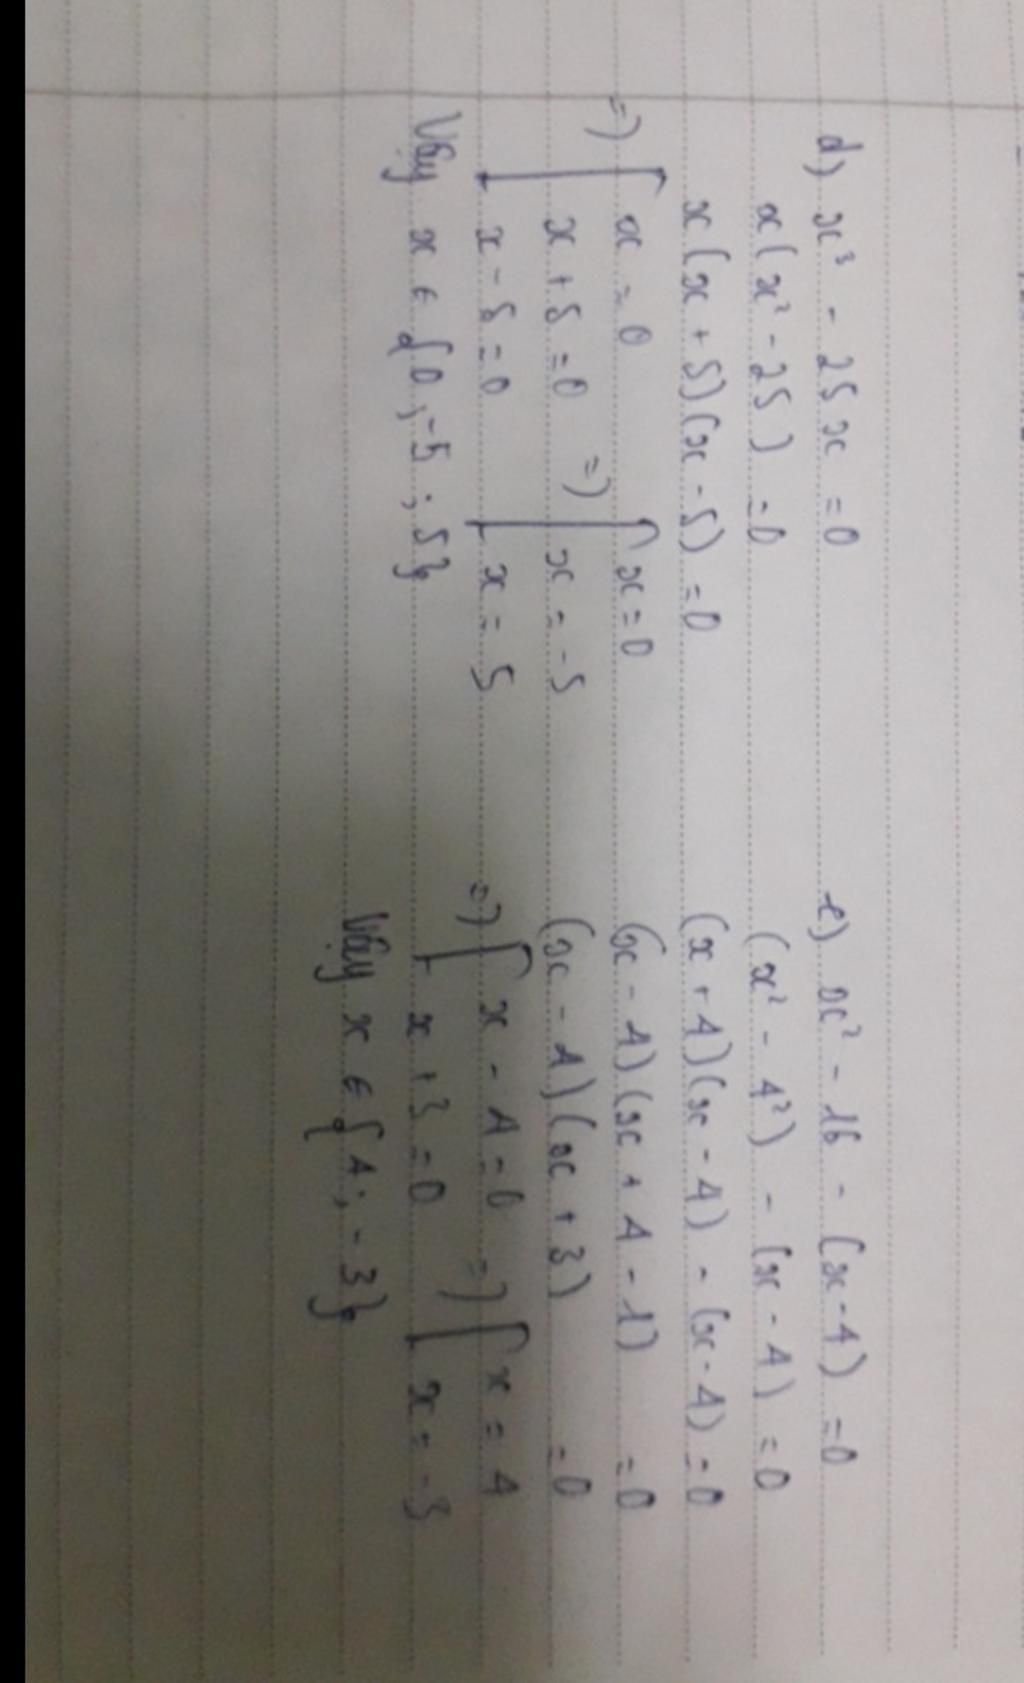 d) x³ - 25x = 0
x(x² - 25) = 0
x(x + 5)(x - 5) = 0
=> [ x = 0
x + 5 = 0 => [ x = 0
x - 5 = 0 x = -5
x = 5
Vậy x ∈ {0; -5; 5}
e) x² - 16 - (x - 4) = 0
(x² - 4²) - (x - 4) = 0
(x + 4)(x - 4) - (x - 4) = 0
(x - 4)(x + 4 - 1) = 0
(x - 4)(x + 3) = 0
=> [ x - 4 = 0 => [ x = 4
x + 3 = 0 x = -3
Vậy x ∈ {4; -3}